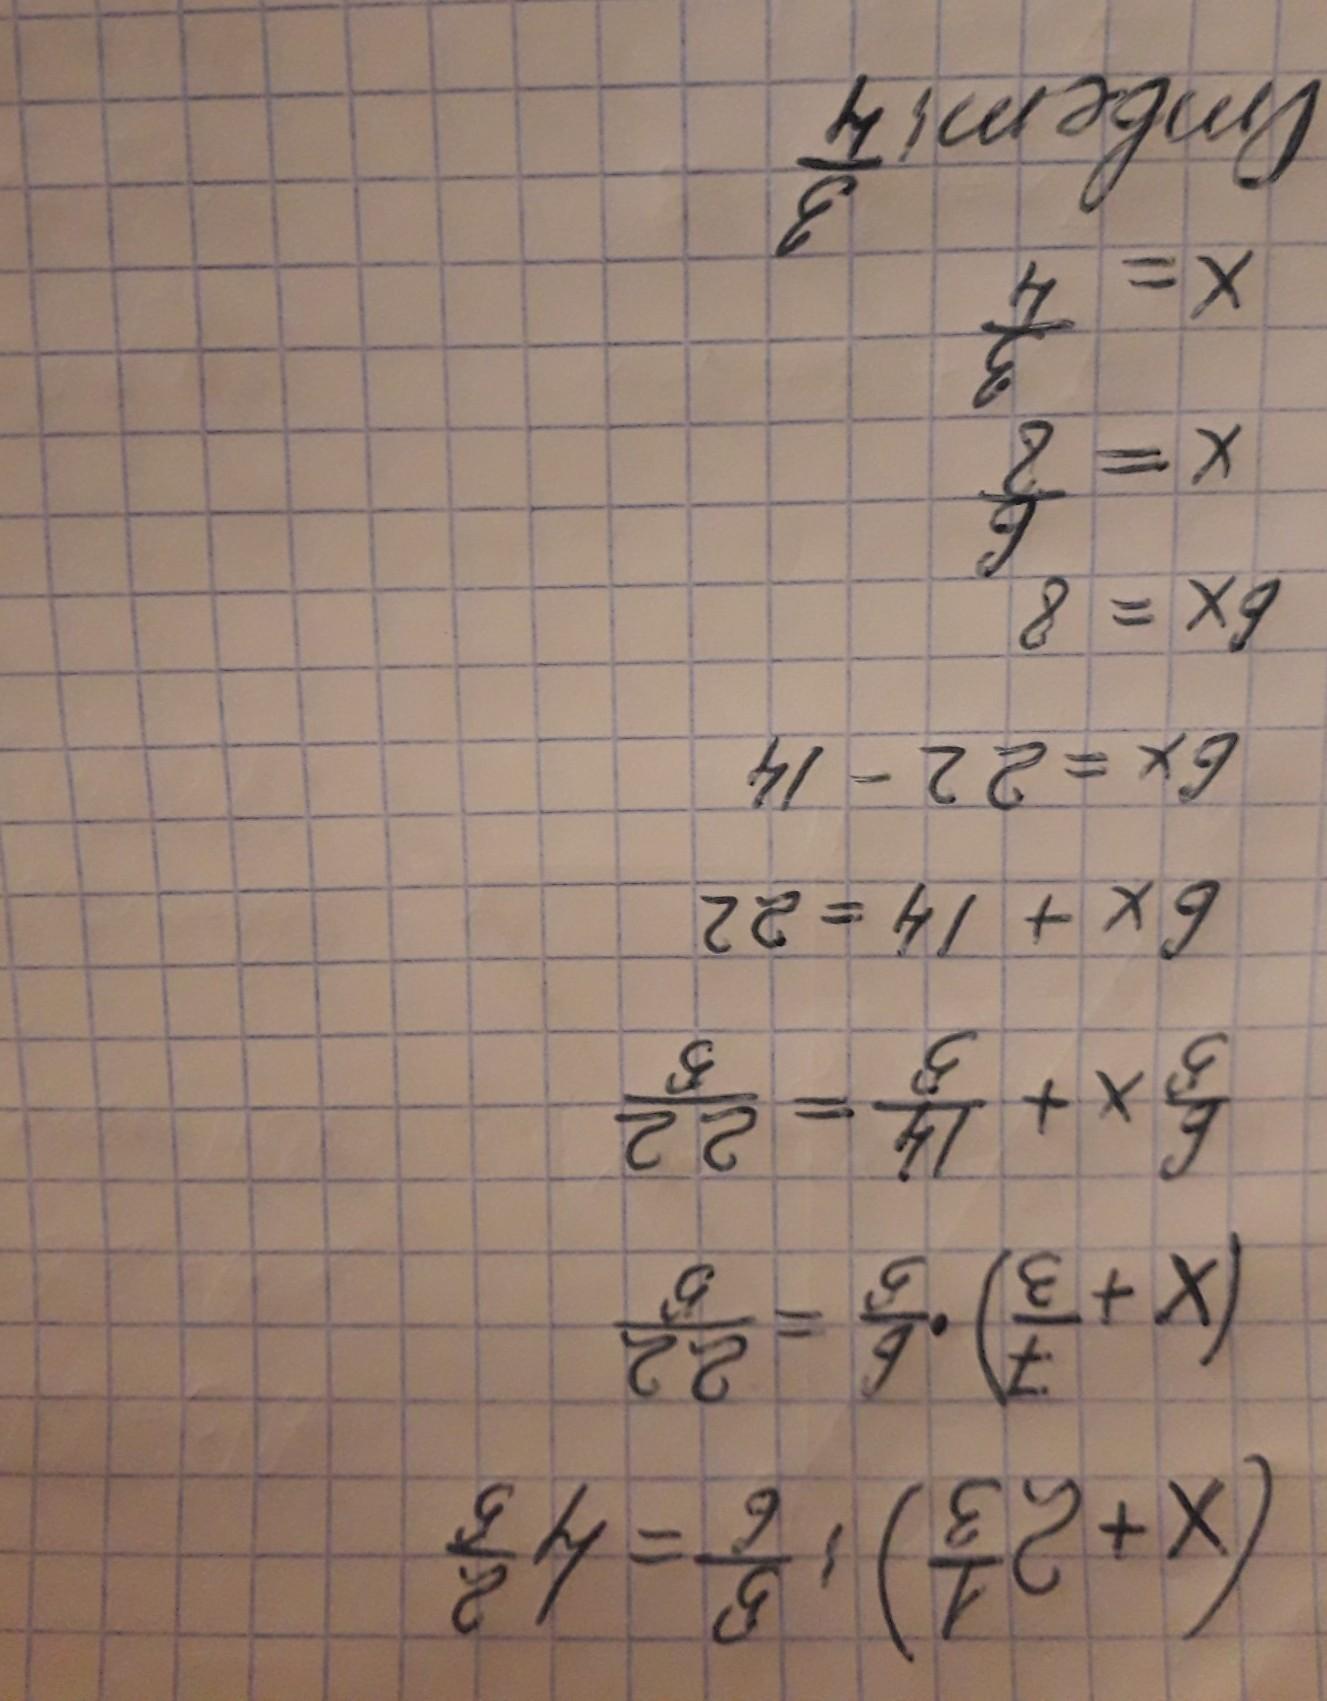 (x + 2 1/3) : 5/6 = 4 2/5
(x + 7/3) · 6/5 = 22/5
6/5 x + 14/5 = 22/5
6x + 14 = 22
6x = 22 - 14
6x = 8
x = 6/8
x = 3/4
Ответ: 3/4